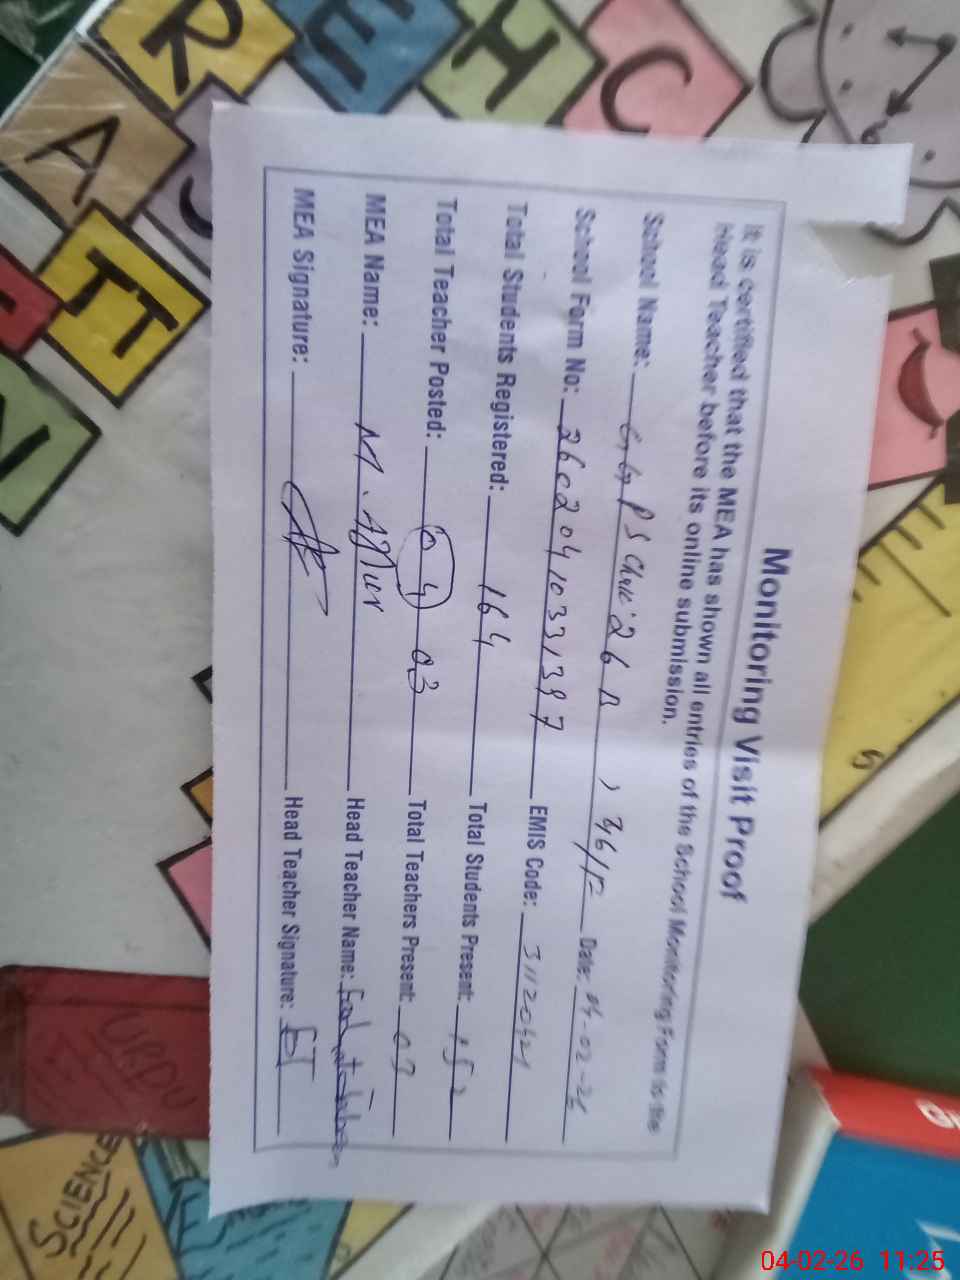 Monitoring Visit Proof
It is certified that the MEA has shown all entries of the School Monitoring Form to the
Head Teacher before its online submission.
School Name: GGPS Chak 26 A, 36/F Date: 04-02-26
School Form No: 26c20410331397 EMIS Code: 31120421
Total Students Registered: 164 Total Students Present: 152
Total Teacher Posted: 03 Total Teachers Present: 03
MEA Name: M. Head Teacher Name:
MEA Signature: Head Teacher Signature:
R
E
H
C
A
T
N
6
URDU
SCIENCE
04-02-26 11:25